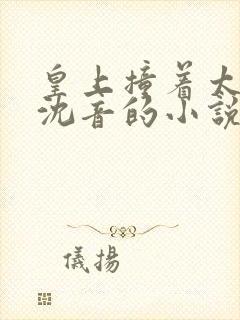 皇上撞着太
沈音的小說
儀揚